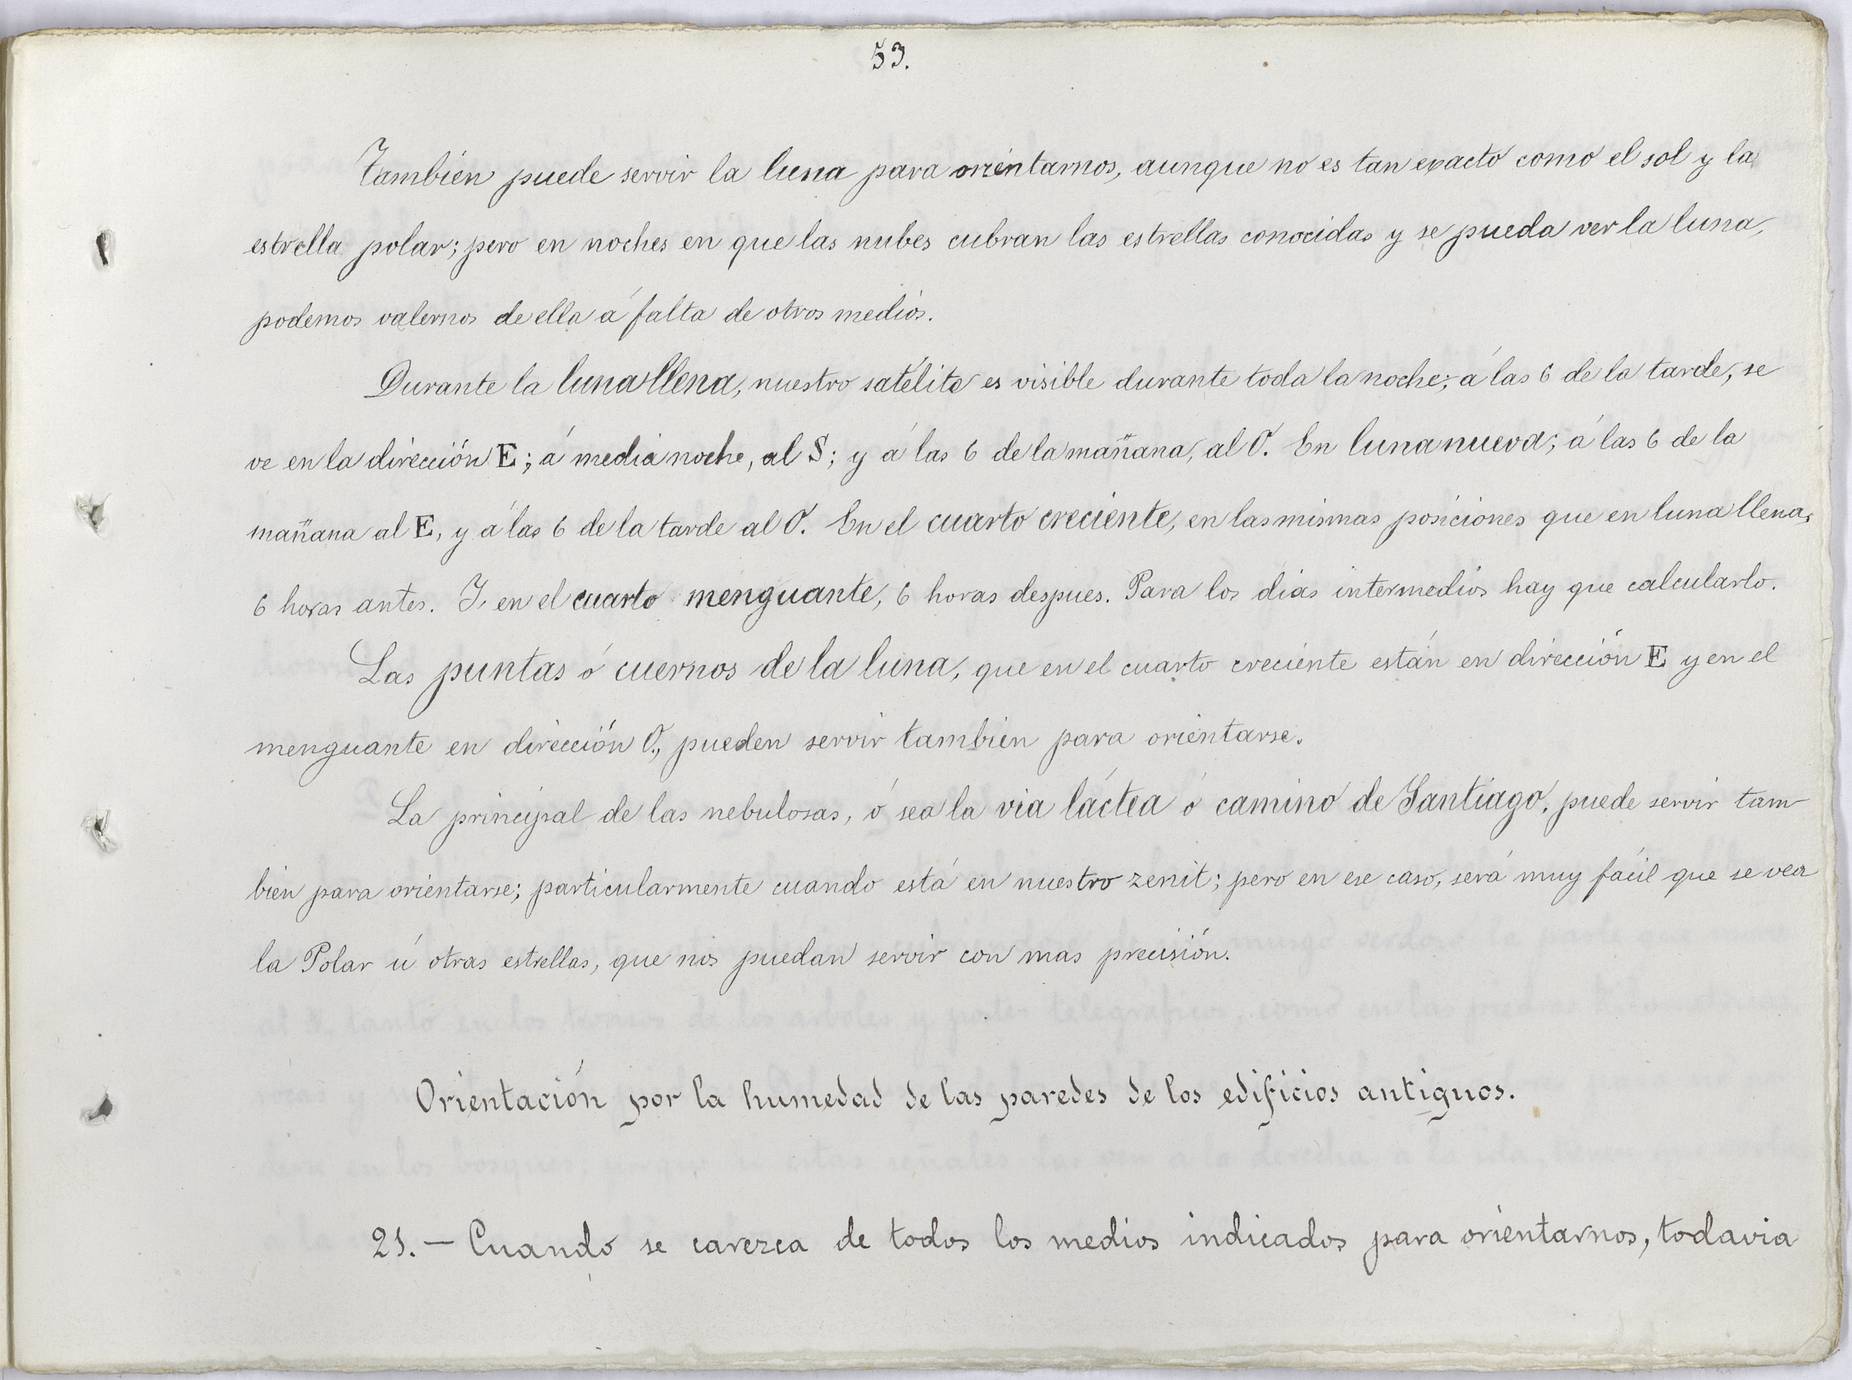 53.
También puede servir la luna para orientarnos, aunque no es tan exacto como el sol y la
estrella polar; pero en noches en que las nubes cubran las estrellas conocidas y se pueda ver la luna,
podemos valernos de ella á falta de otros medios.
Durante la luna llena, nuestro satélite es visible durante toda la noche; á las 6 de la tarde, se
ve en la dirección E; á media noche, al S; y á las 6 de la mañana, al O. En luna nueva; á las 6 de la
mañana al E, y á las 6 de la tarde al O. En el cuarto creciente, en las mismas posiciones que en luna llena,
6 horas antes. Y en el cuarto menguante, 6 horas despues. Para los dias intermedios hay que calcularlo.
Las puntas ó cuernos de la luna, que en el cuarto creciente están en dirección E y en el
menguante en dirección O., pueden servir tambien para orientarse.
La principal de las nebulosas, ó sea la via láctea ó camino de Santiago, puede servir tam-
bien para orientarse; particularmente cuando está en nuestro zenit; pero en ese caso, será muy fácil que se vea
la Polar ú otras estrellas, que nos puedan servir con mas precisión.
Orientación por la humedad de las paredes de los edificios antiguos.
21. — Cuando se carezca de todos los medios indicados para orientarnos, todavia